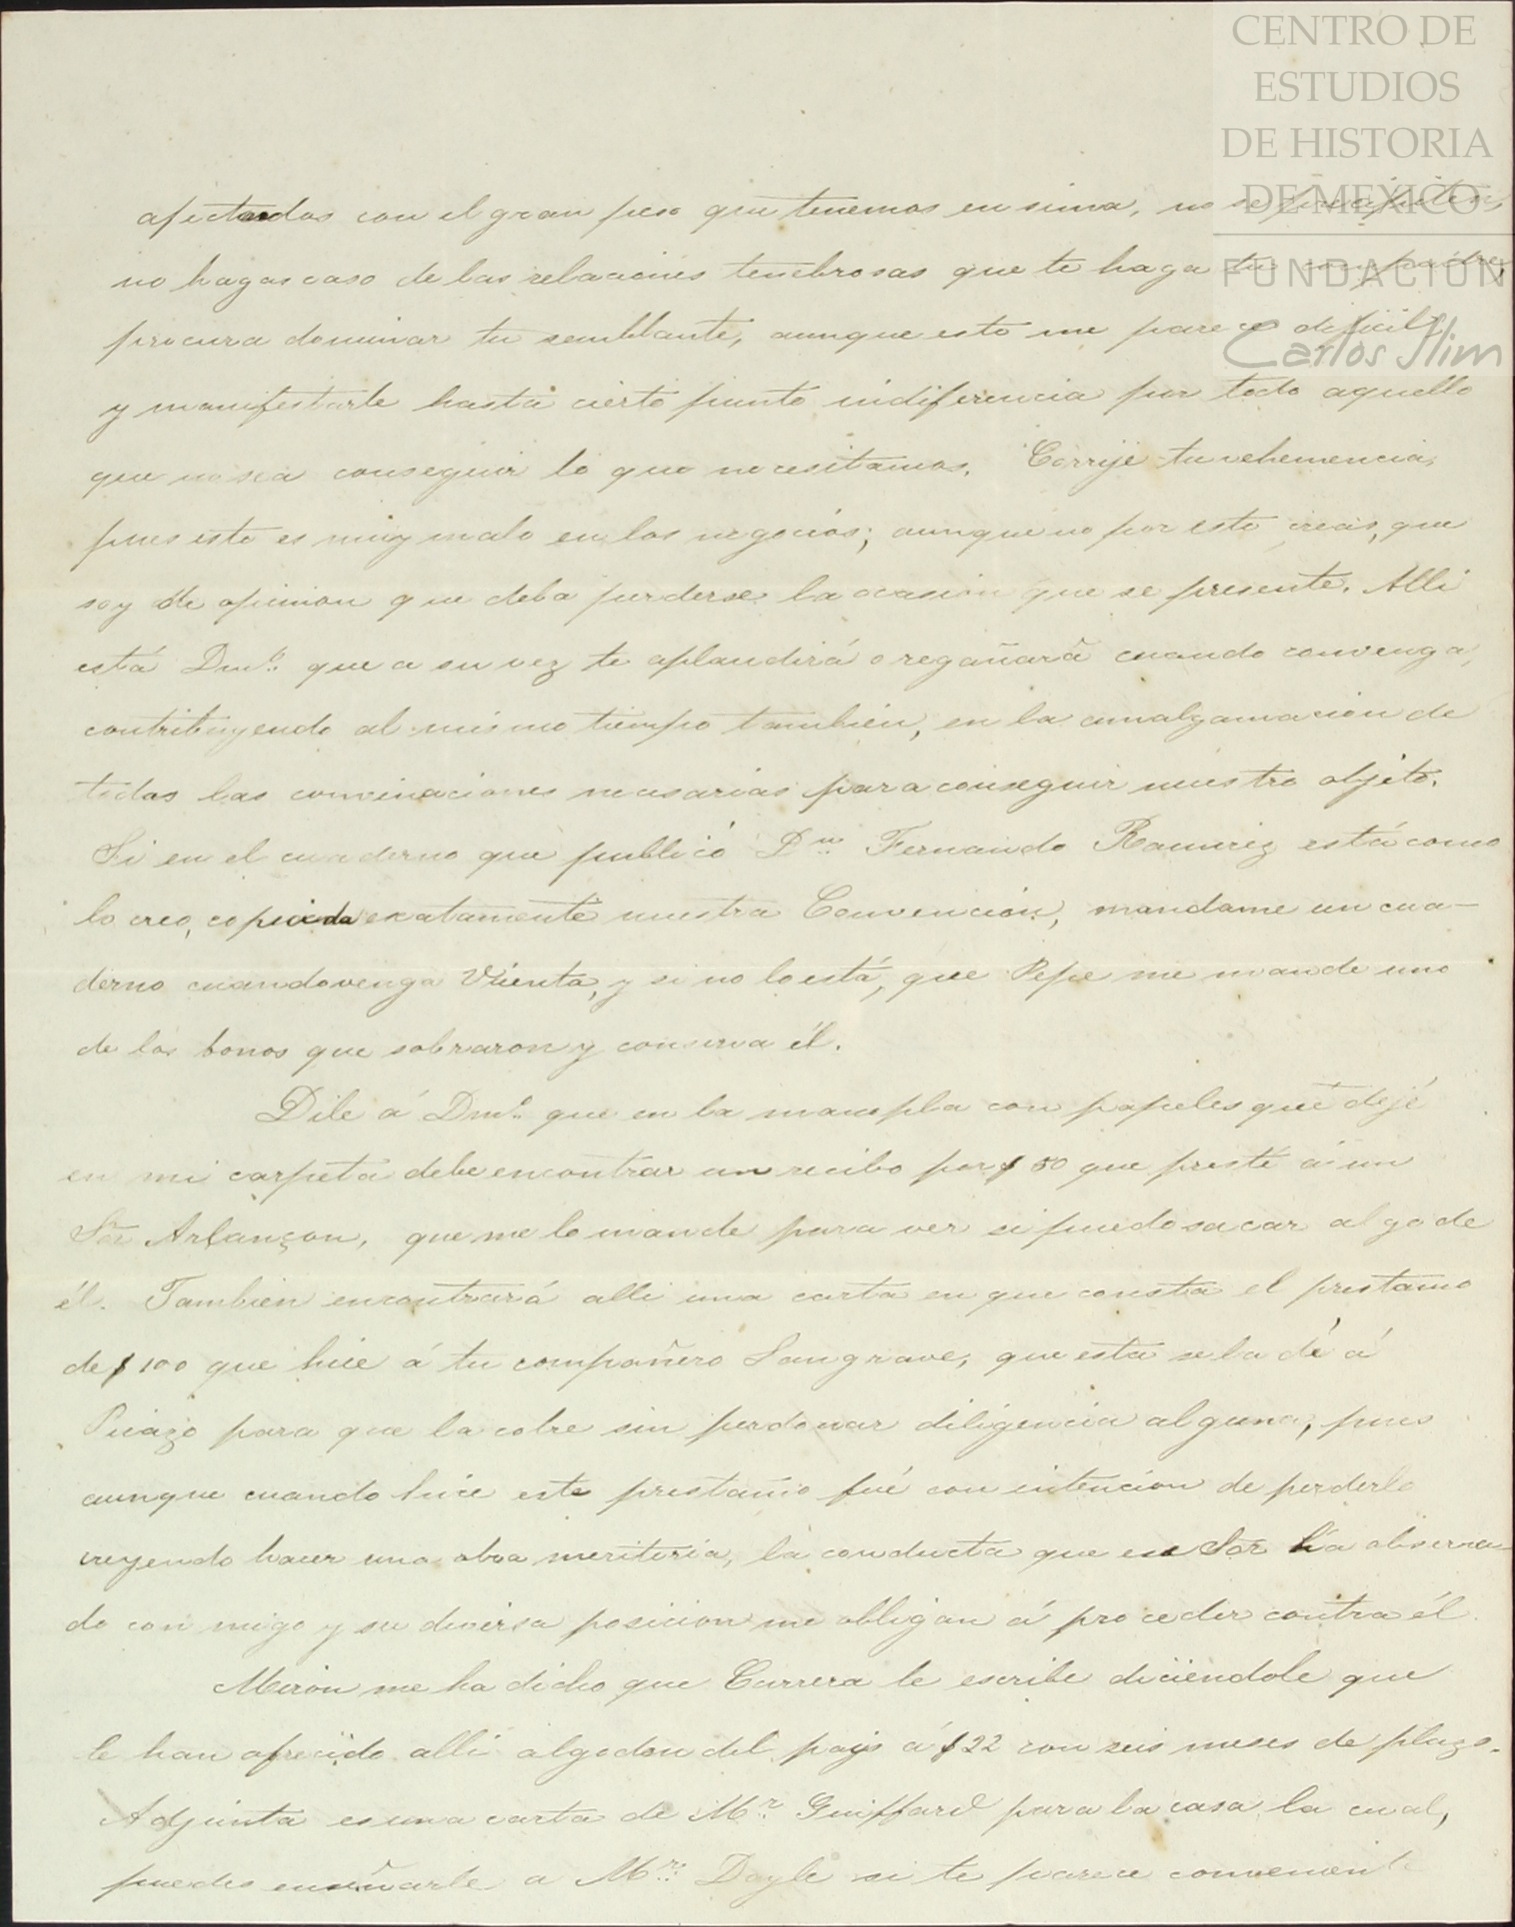 CENTRO DE
ESTUDIOS
DE HISTORIA
DE MEXICO
FUNDACIÓN
Carlos Slim
afectados con el gran peso que tenemos en sima, no se precipiten,
no hagas caso de las relaciones tenebrosas que te haga tu compadre,
procura dominar tu semblante, aunque esto me parece dificil,
y manifestarle hasta cierto punto indiferencia por todo aquello
que no sea conseguir lo que necesitamos. Corrije tu vehemencia,
pues esto es muy malo en los negocios; aunque no por esto creas, que
soy de opinion que deba perderse la ocasion que se presente. Alli
está Dml. que a su vez te aplaudirá o regañará cuando convenga,
contribuyendo al mismo tiempo tambien, en la amalgamacion de
todas las convinaciones necesarias para conseguir nuestro objeto.
Si en el cuaderno que publicó Dn. Fernando Ramirez está como
lo creo, copiada exatamente nuestra Convencion, mandame un cua-
derno cuando venga Viienta, y si no lo está, que Pepe me mande uno
de los bonos que sobraron y conserva él.
Dile á Dml. que en la mancpla con papeles que dejé
en mi carpeta debe encontrar un recibo por $50 que presté á un
Sor Arlançon, que me lo mande para ver si puedo sacar algo de
él. Tambien encontrará alli una carta en que consta el prestamo
de $100 que hice á tu compañero Langrave, que esta se la dé á
Picazo para que la cobre sin perdonar diligencia alguna, pues
aunque cuando hice este prestamo fué con intencion de perderlo
creyendo hacer una obra meritoria, la conducta que ese Sor ha observa-
do con migo y su diversa posicion me obligan á proceder contra él.
Miron me ha dicho que Carrera le escribe diciendole que
le han ofrecido alli algodon del pays á $22 con seis meses de plazo.
Adjunta es una carta de Mr. Guiffard para la casa la cual,
puedes enseñarle a Mr. Doyle si te parece conveniente